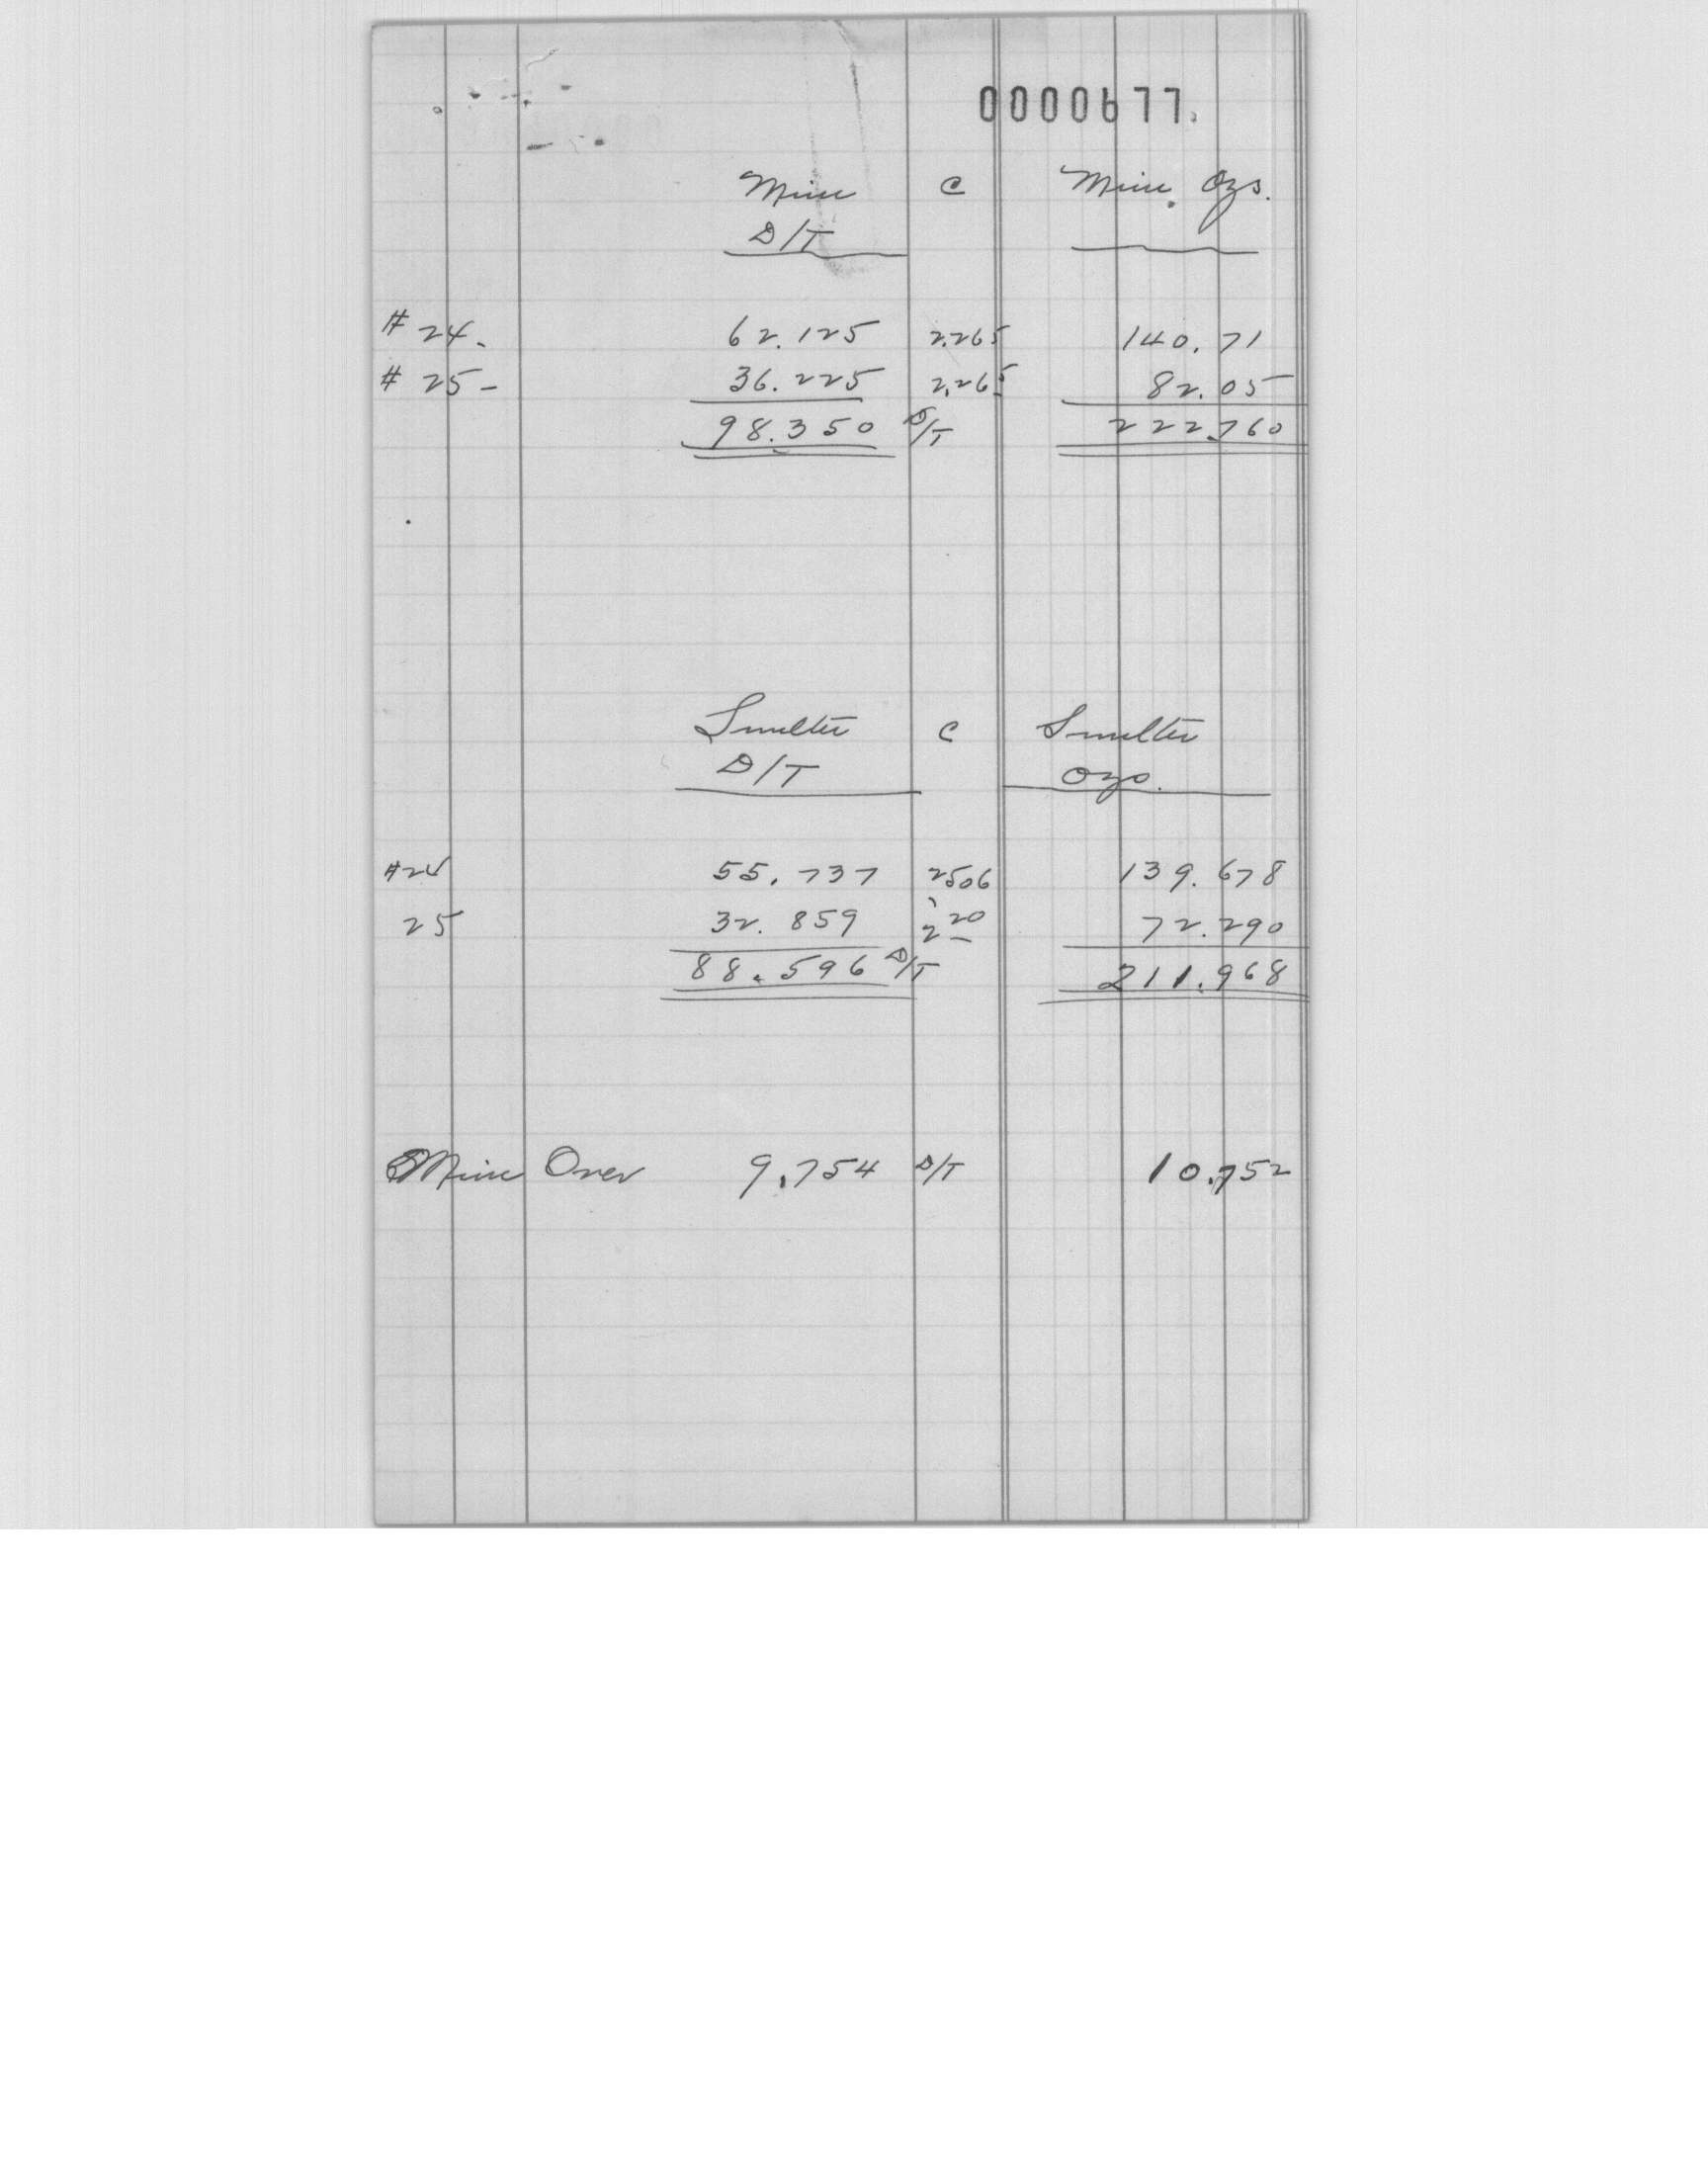 0000677.
Mine C Mine Ozs.
D/T
# 24. 62.125 2.265 140.71
# 25- 36.225 2.265 82.05
98.350 D/T 222.760
Smelter C Smelter
D/T Ozs.
#24 55.737 2506 139.678
25 32.859 2.20 72.290
88.596 D/T 211.968
Mine Over 9.754 D/T 10.752